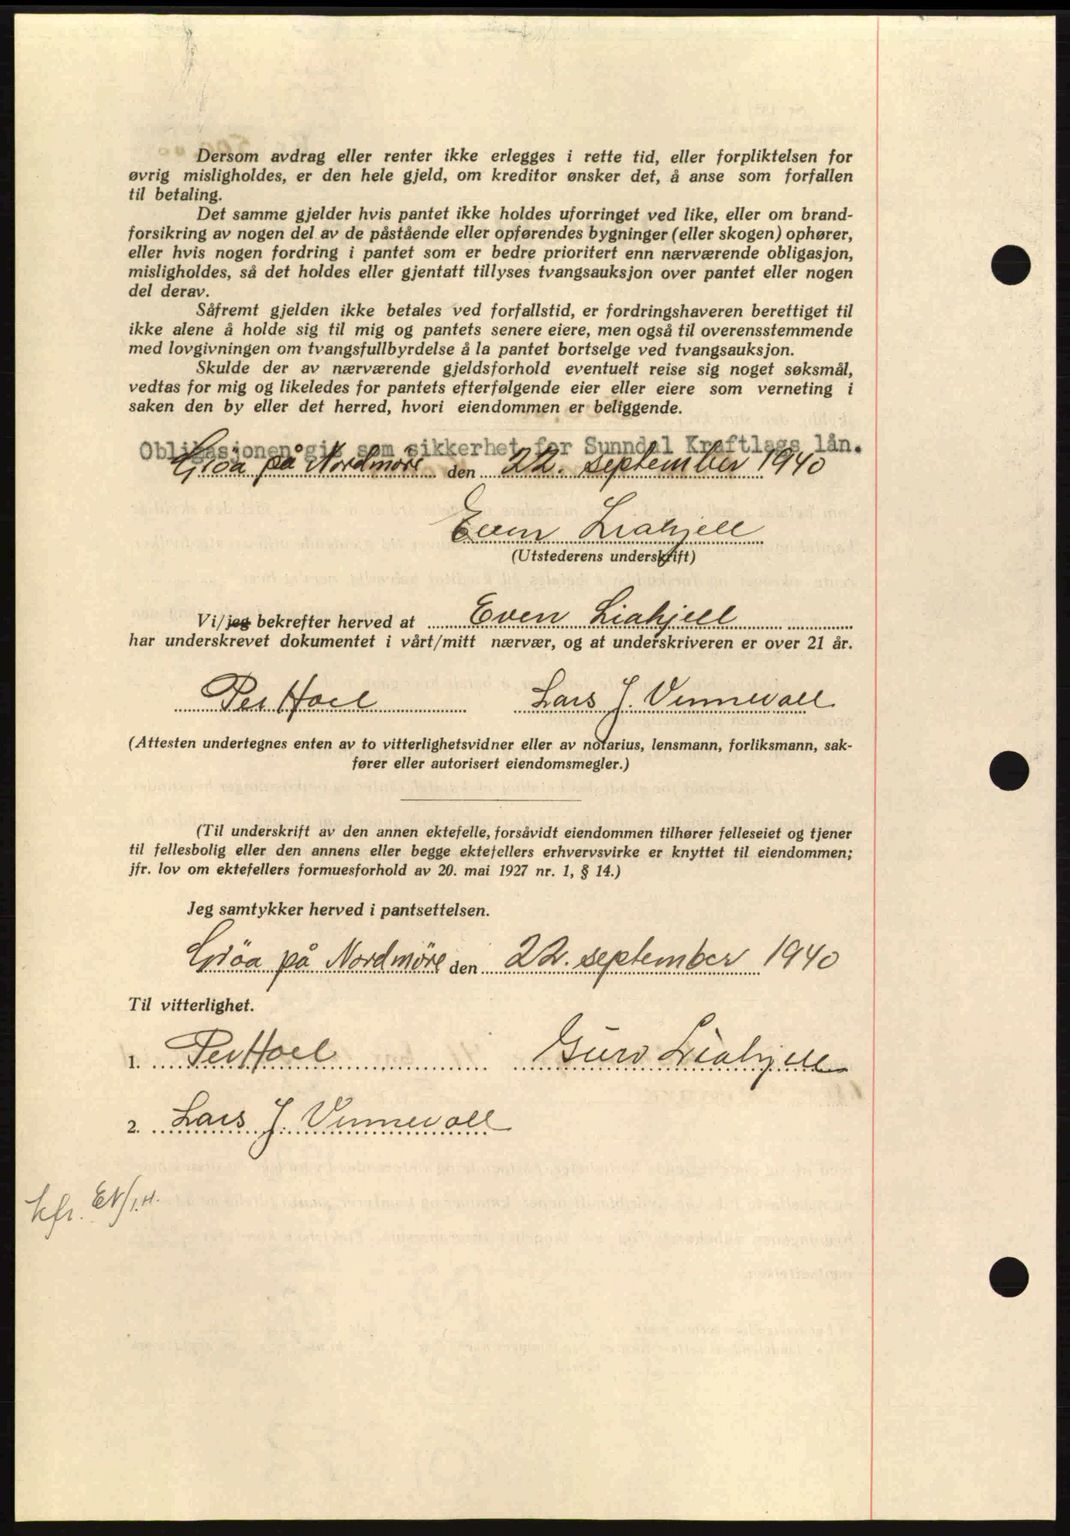 Dersom avdrag eller renter ikke erlegges i rette tid, eller forpliktelsen for
øvrig misligholdes, er den hele gjeld, om kreditor ønsker det, å anse som forfallen
til betaling.
Det samme gjelder hvis pantet ikke holdes uforringet ved like, eller om brand-
forsikring av nogen del av de påstående eller opførendes bygninger (eller skogen) ophører,
eller hvis nogen fordring i pantet som er bedre prioritert enn nærværende obligasjon,
misligholdes, så det holdes eller gjentatt tillyses tvangsauksjon over pantet eller nogen
del derav.
Såfremt gjelden ikke betales ved forfallstid, er fordringshaveren berettiget til
ikke alene å holde sig til mig og pantets senere eiere, men også til overensstemmende
med lovgivningen om tvangsfullbyrdelse å la pantet bortselge ved tvangsauksjon.
Skulde der av nærværende gjeldsforhold eventuelt reise sig noget søksmål,
vedtas for mig og likeledes for pantets efterfølgende eier eller eiere som verneting i
saken den by eller det herred, hvori eiendommen er beliggende.
Obligasjonen gis som sikkerhet for Sunndal Kraftlags lån.
Grøa på Nordmøre den 22. september 1940
Even Liahjell
(Utstederens underskrift)
Vi/jeg bekrefter herved at Even Liahjell
har underskrevet dokumentet i vårt/mitt nærvær, og at underskriveren er over 21 år.
Per Hoel Lars J. Vinnevoll
(Attesten undertegnes enten av to vitterlighetsvidner eller av notarius, lensmann, forliksmann, sak-
fører eller autorisert eiendomsmegler.)
(Til underskrift av den annen ektefelle, forsåvidt eiendommen tilhører felleseiet og tjener
til fellesbolig eller den annens eller begge ektefellers erhvervsvirke er knyttet til eiendommen;
jfr. lov om ektefellers formuesforhold av 20. mai 1927 nr. 1, § 14.)
Jeg samtykker herved i pantsettelsen.
Grøa på Nordmøre den 22. september 1940
Til vitterlighet.
1. Per Hoel Guro Liahjell
2. Lars J. Vinnevoll
kfr. EN/I.H.